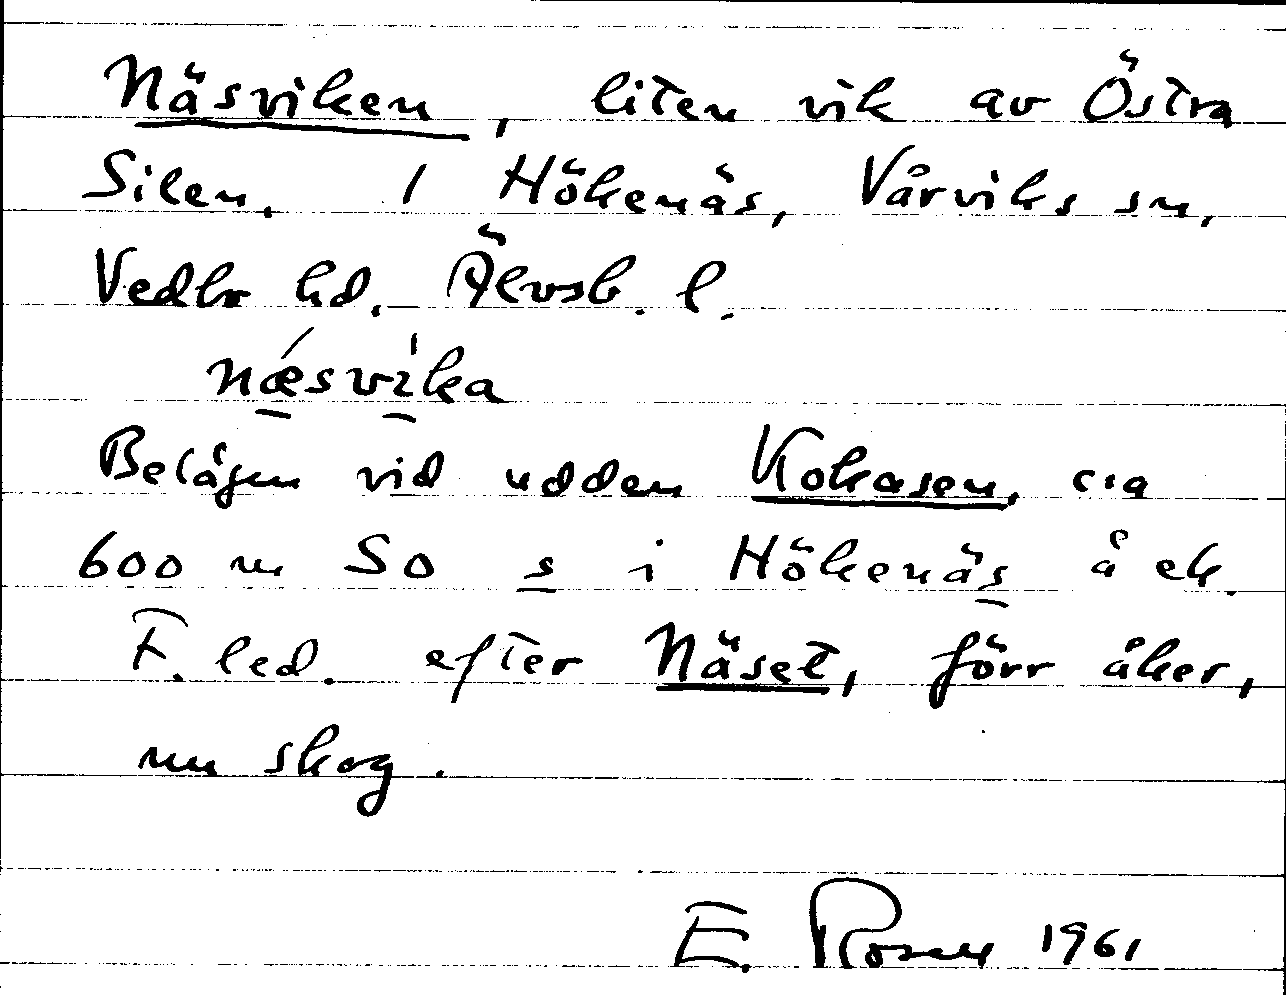 Näsviken, liten vik av Östra
Silen. I Hökenäs, Vårviks sn,
Vedbo hd. Älvsb. l.
næ´svi`ka
Belägen vid udden Kokasen, c:a
600 m SO s i Hökenäs å ek.
F. led. efter Näset, förr åker,
nu skog.
E. Rosell 1961